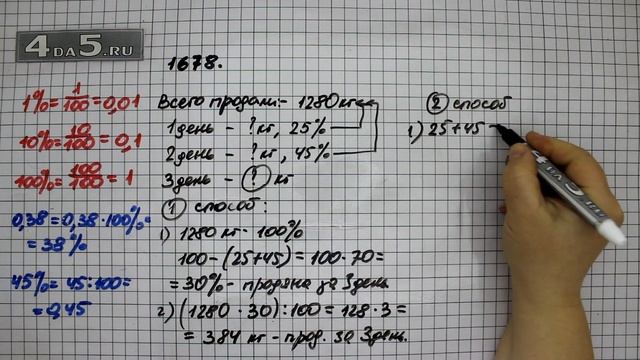 4DA5.RU
1678.
1%=1/100=0,01
10%=10/100=0,1
100%=100/100=1
0,38=0,38·100%=
=38%
45%=45:100=
=0,45
Всего продали - 1280 кг
1 день - ? кг, 25%
2 день - ? кг, 45%
3 день - ? кг
1 способ:
1) 1280 кг - 100%
100-(25+45)=100-70=
=30% - продана за 3 день
2) (1280·30):100=128·3=
=384 кг - прод. за 3 день.
2 способ
1) 25+45
4DA5.RU